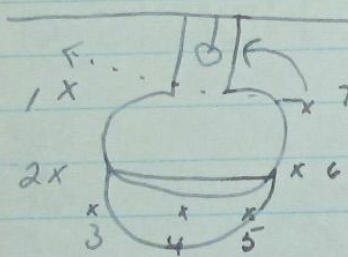 1 X X 7
2 X X 6
X X X
3 4 5